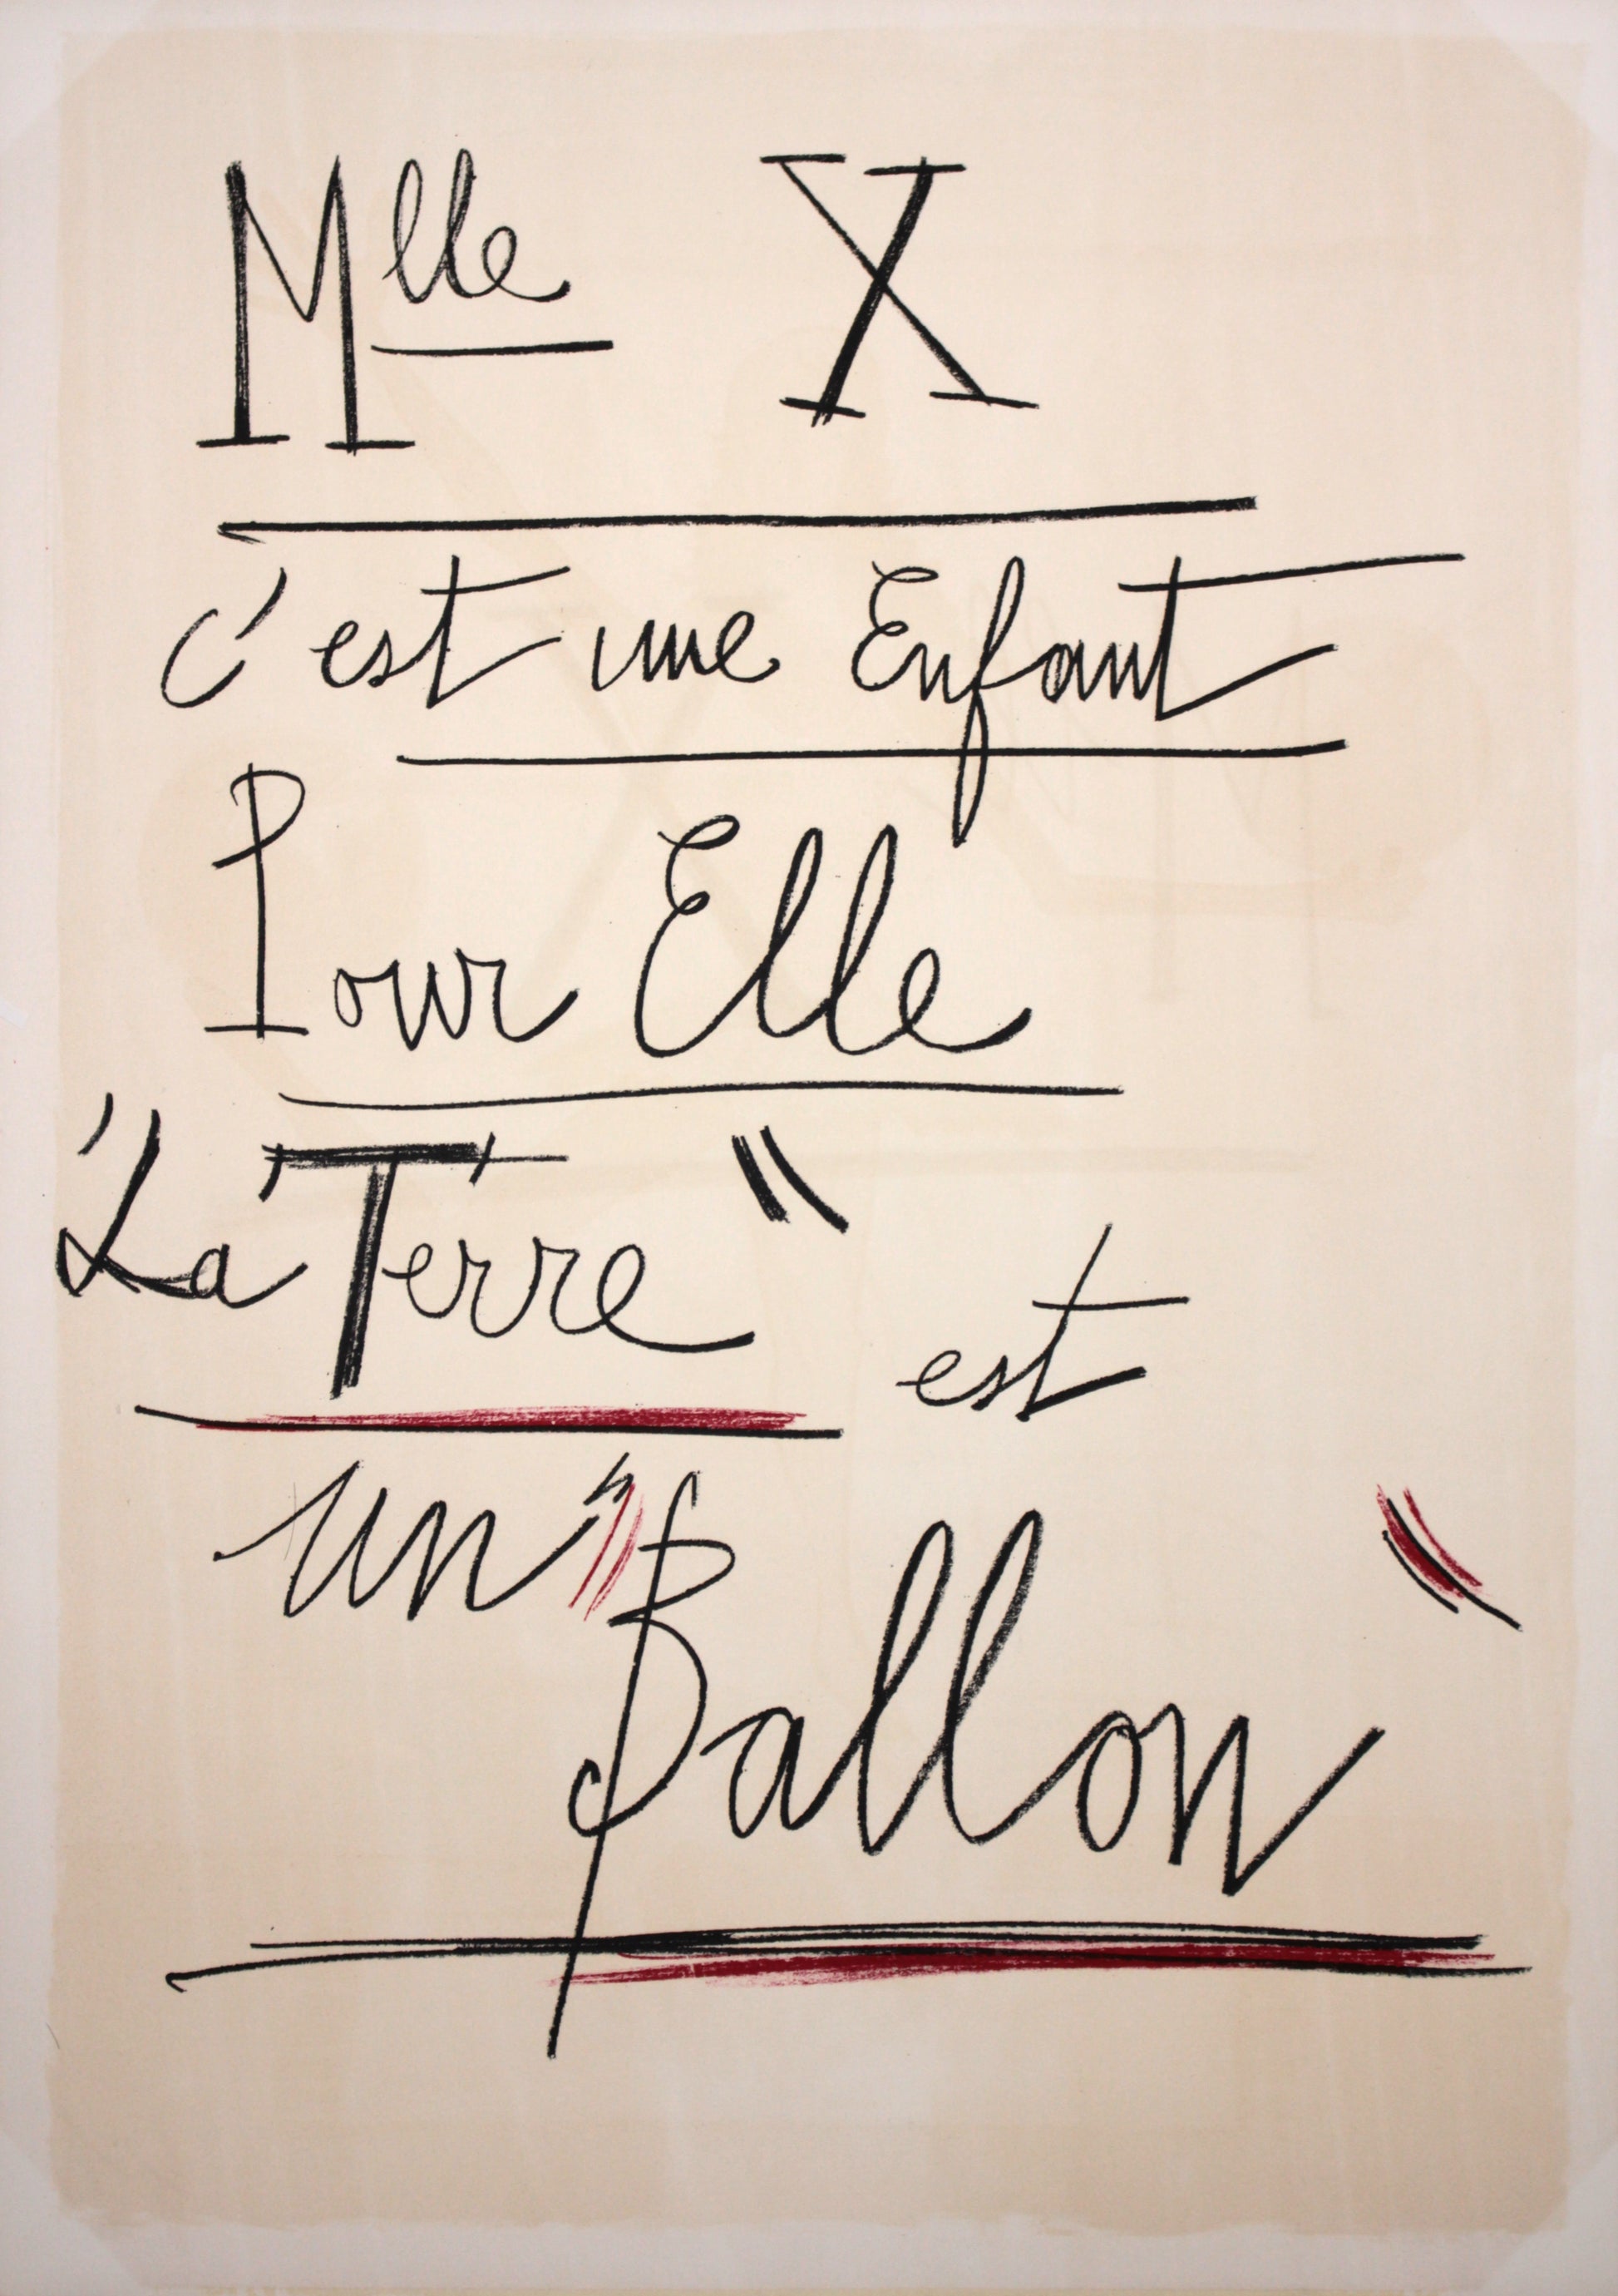 Mlle X
c'est une Enfant
Pour Elle
"La Terre" est
un "Ballon"